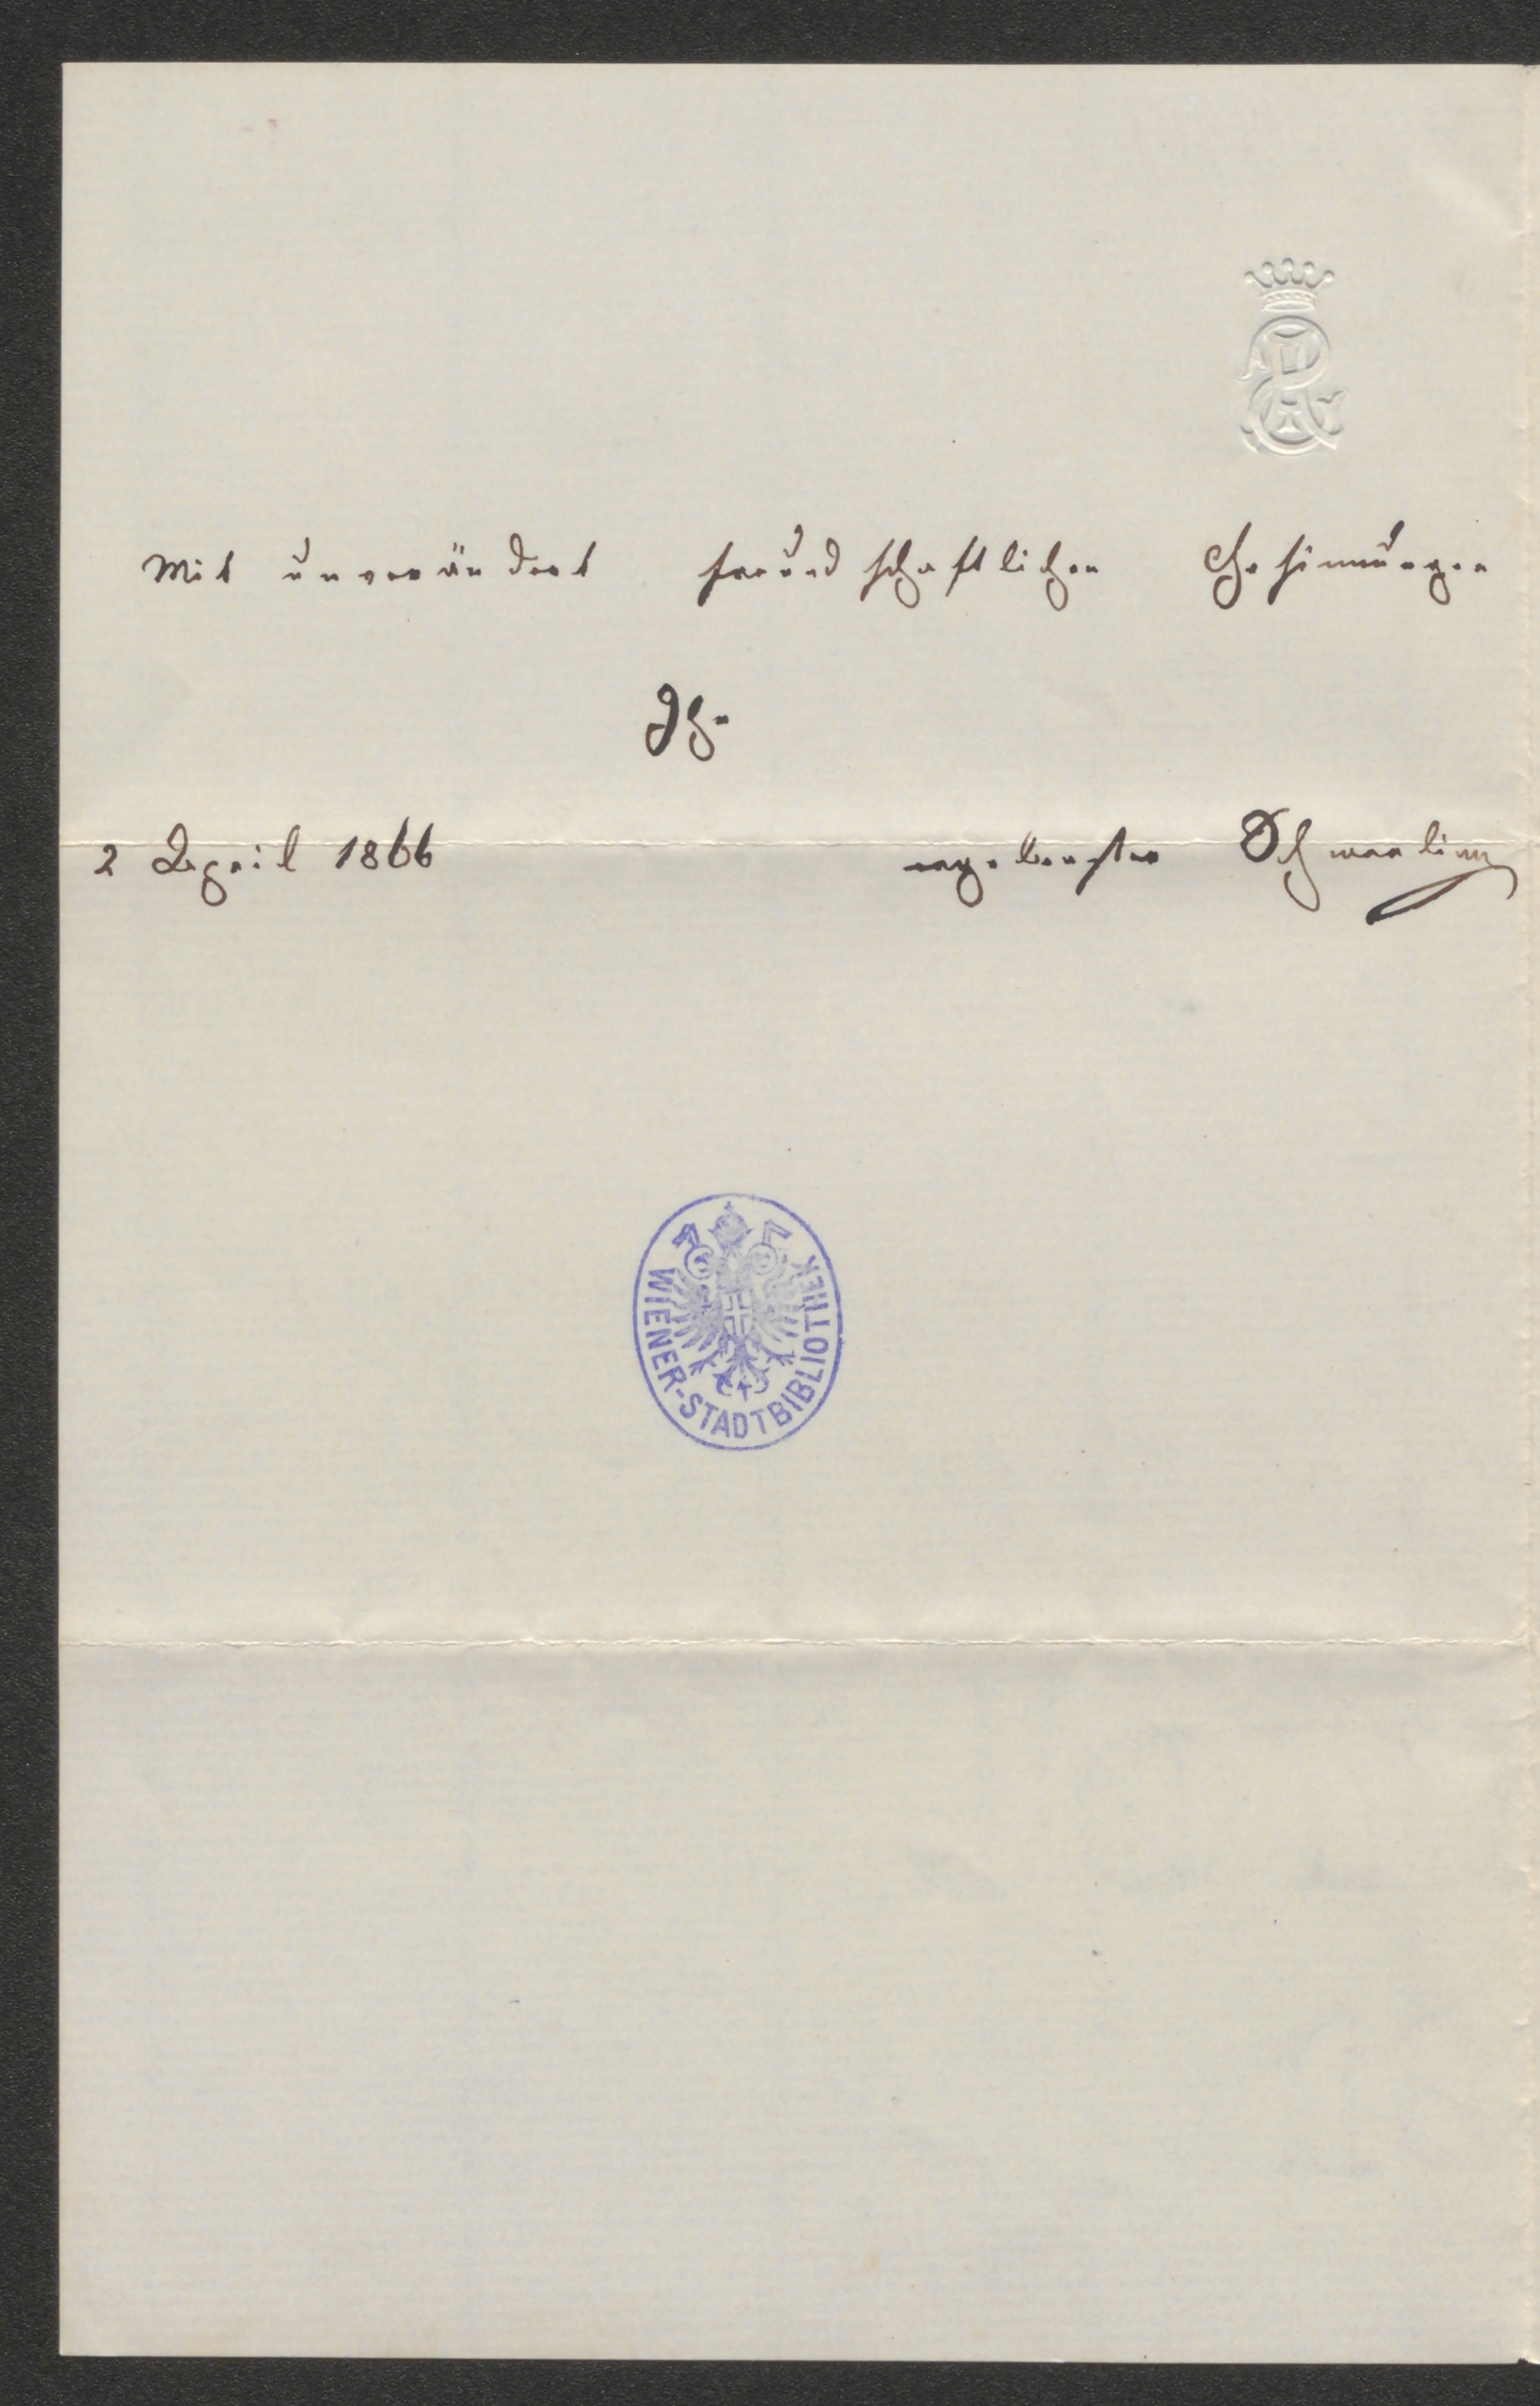 Mit unverändert freundschaftlichen Gesinnungen
Ihr
2 April 1866 ergebenster Schmerling
WIENER-STADTBIBLIOTHEK